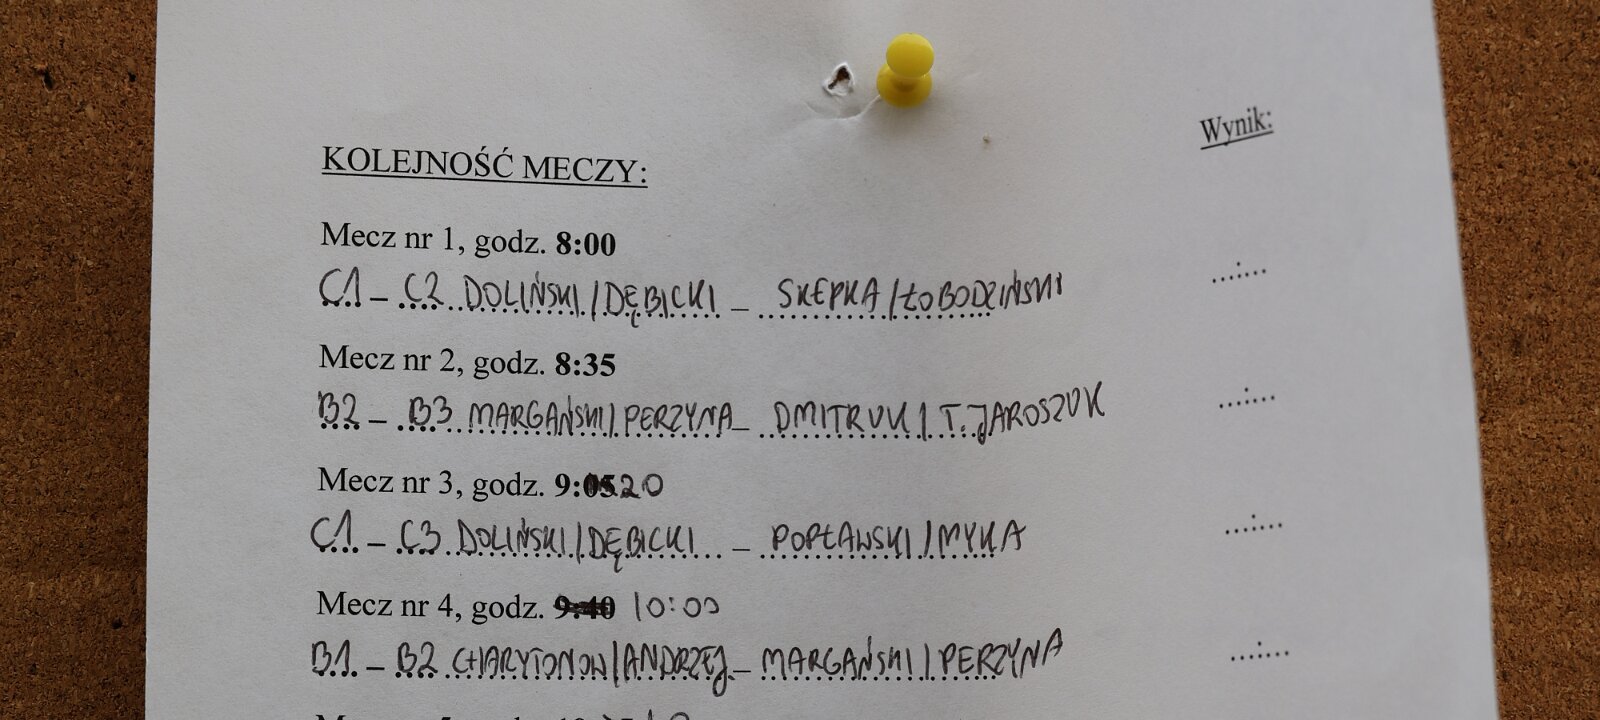 Wynik:
KOLEJNOŚĆ MECZY:
Mecz nr 1, godz. 8:00
C1 – C2 DOLIŃSKI/DĘBICKI – SKEPKA/ŁOBODZIŃSKI ...:...
Mecz nr 2, godz. 8:35
B2 – B3 MARGAŃSKI/PERZYNA – DMITRUK/T.JAROSZUK ...:...
Mecz nr 3, godz. 9:05 20
C1 – C3 DOLIŃSKI/DĘBICKI – POPŁAWSKI/MYKA ...:...
Mecz nr 4, godz. 9:40 10:00
B1 – B2 CHARYTONOW/ANDRZEJ – MARGAŃSKI/PERZYNA ...:...